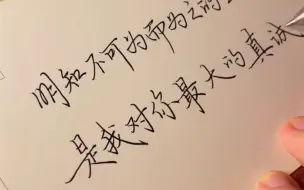 明知不可为而为之的
是我对你最大的真诚